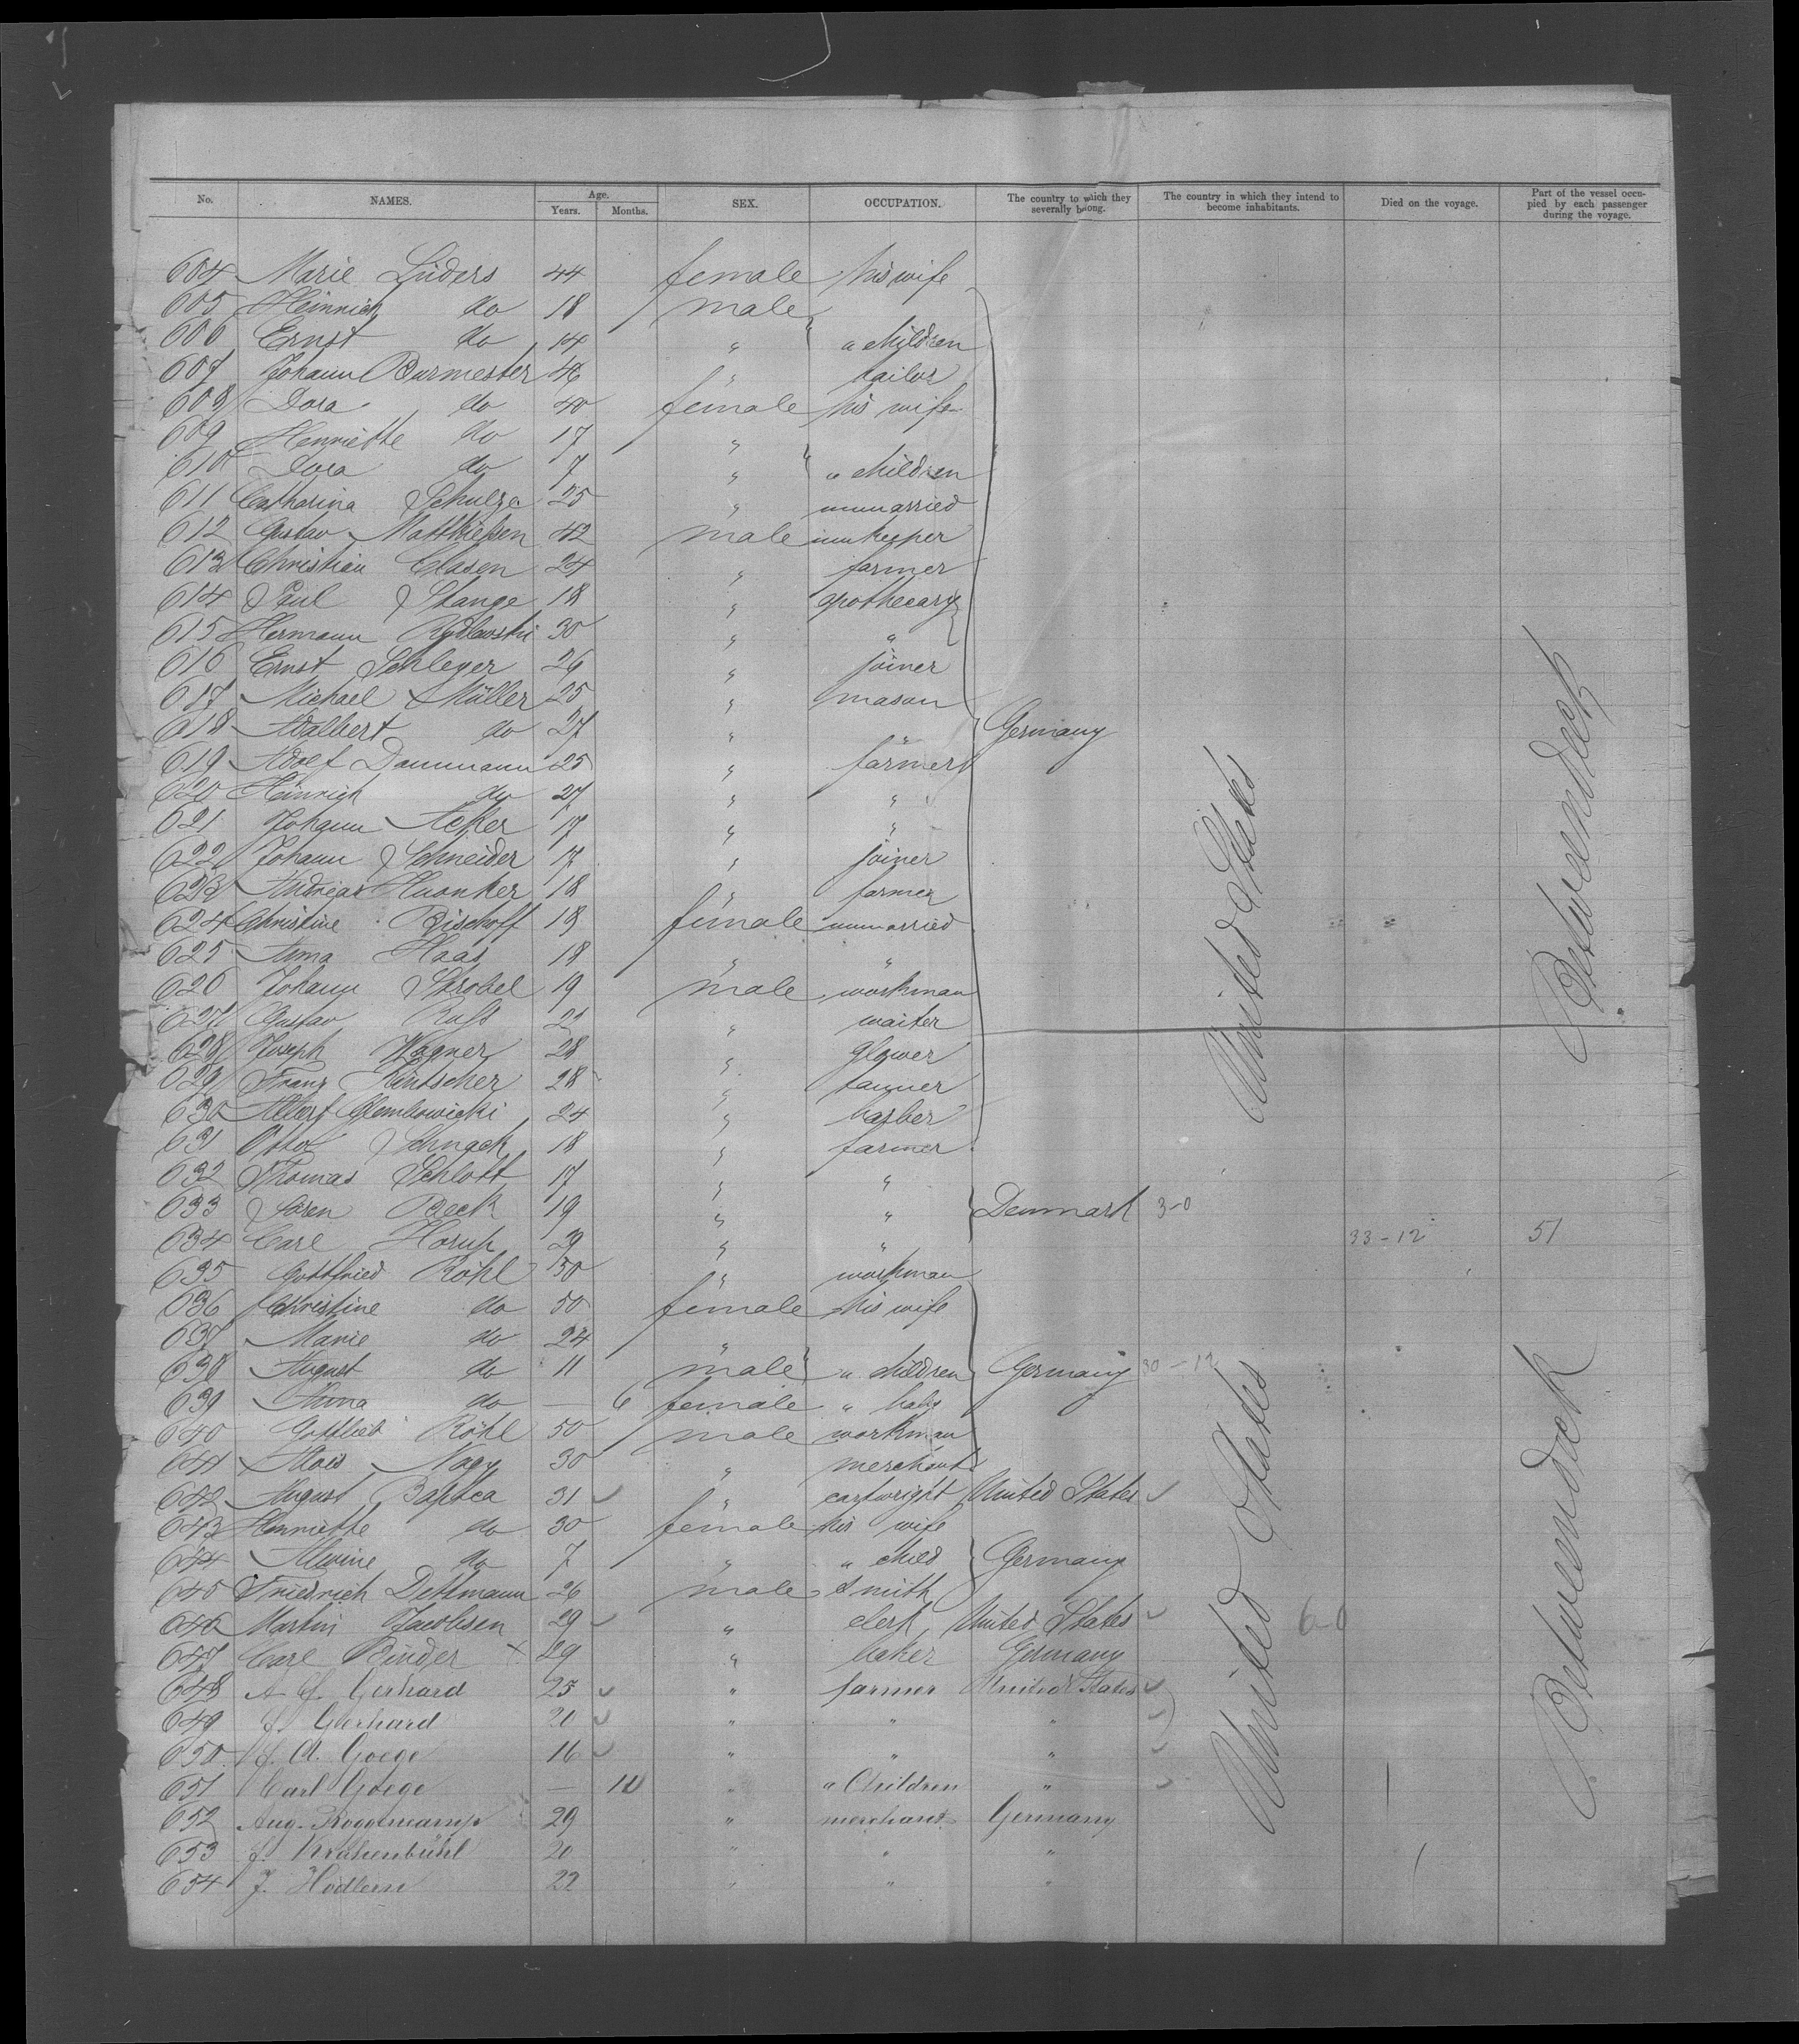 No. NAMES. Age. Years. Months. SEX. OCCUPATION. The country to which they severally belong. The country in which they intend to become inhabitants. Died on the voyage. Part of the vessel occupied by each passenger during the voyage.
604 Marie Lüders 44 female his wife
605 Heinrich do 18 male
606 Ernst do 14 " " children
607 Johann Burmester 46 " tailor
608 Dora do 40 female his wife
609 Henriette do 17 "
610 Dora do 7 " " children
611 Catharina Schulze 25 " unmarried
612 Gustav Matthießen 42 male innkeeper
613 Christian Clasen 24 " farmer
614 Paul Stange 18 " apothecary
615 Hermann 30 " "
616 Ernst Schleyer 26 " joiner
617 Michael Müller 25 " mason
618 Adalbert do 27 " " Germany
619 Adolf Dammann 25 " farmer
620 Heinrich do 27 " "
621 Johann Acker 17 " "
622 Johann Schneider 17 " joiner
623 Andreas Huonker 18 " farmer
624 Christine Bischoff 18 female unmarried
625 Anna Haas 18 " "
626 Johann Strobel 19 male workman
627 Gustav Ruff 21 " waiter
628 Joseph Wagner 28 " glower
629 Franz 28 " tanner
630 Albert Glembowicki 24 " barber
631 Otto Schnack 18 " farmer
632 Thomas Schlott 17 " "
633 Sören Beck 19 " " Denmark 3-0
634 Carl Horup 29 " " 33-12 51
635 Gottfried Röhl 50 " workman
636 Christine do 50 female his wife
637 Marie do 24 "
638 August do 11 male " children Germany 30-12
639 Anna do — 6 female " baby
640 Gottlieb Röhl 50 male workman
641 Alois Nagy 30 " merchant
642 August 31 " cartwright United States
643 Henriette do 30 female his wife
644 Alwine do 7 " " child Germany
645 Friedrich Dettmann 26 male smith
646 Martin Jacobsen 29 " clerk United States 6-0
647 Carl Binder x 29 " baker Germany
648 Gerhard 25 " farmer United States
649 J. Gerhard 20 " " "
650 Goege 16 " " "
651 Carl Goege — " " Children "
652 Aug. 29 " merchant Germany
653 J. Krähenbühl 20 " " "
654 J. 22 " " "
United States
Betweendeck
United States
Betweendeck